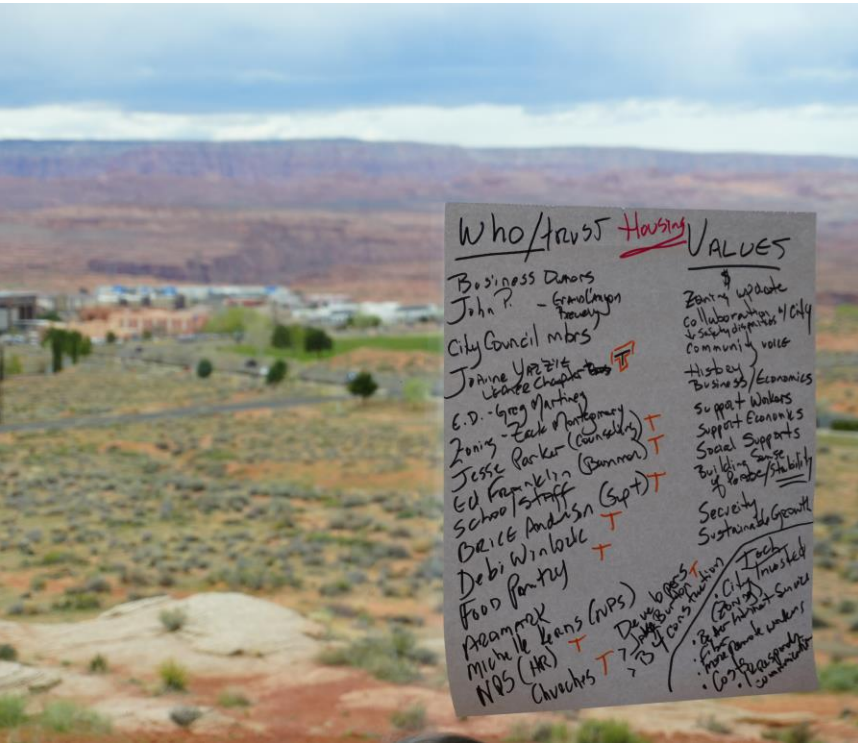 Who/trust
Housing
Business Owners
John P. - Grand Canyon
Brewery
City Council mbrs
Joanne Yazzie T
Chapter
E.D. - Greg Martinez
Zoning - Zack Montgomery
Jesse Parker (Counselors) T
Ed Franklin (Banner) T
School/staff
Brice Anderson (Supt) T
Debi Winlock T
Food Pantry T
Aramark
Michelle Kerns (NPS)
NPS (HR) T
Churches T
Developers T
> Jake Burton
> B 4 Construction
VALUES
$
Zoning update
Collaboration w/ City
Community voice
History
Business/Economics
Support Workers
Support Economics
Social Supports
Building Sense
of People/Stability
Security
Sustainable Growth
• City Invested
(Zoning)
• Better Internet Service
• Fiber
• more remote workers
• Cost